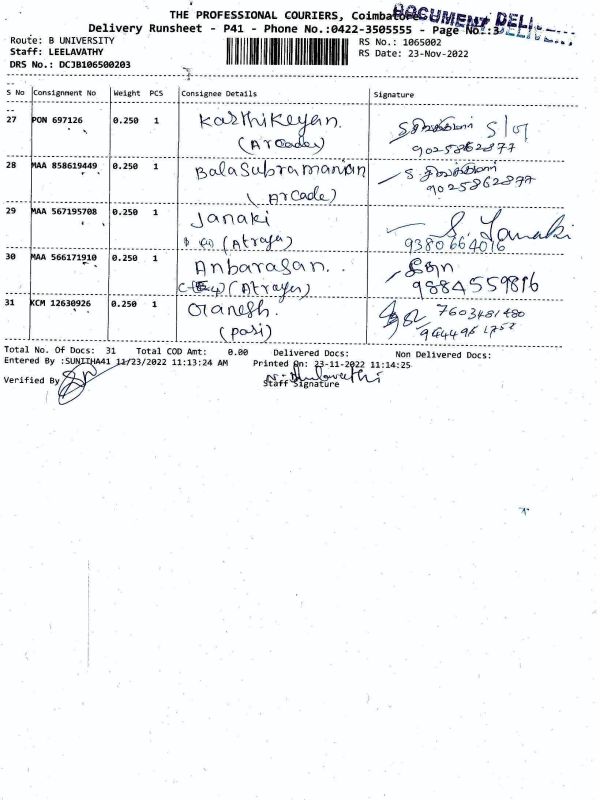 THE PROFESSIONAL COURIERS, Coimbatore
DOCUMENT DELI
Delivery Runsheet - P41 - Phone No.:0422-3505555 - Page No.:3
Route: B UNIVERSITY
RS No.: 1065002
Staff: LEELAVATHY
RS Date: 23-Nov-2022
DRS No.: DCJB106500203
S No Consignment No Weight PCS Consignee Details Signature
27 PON 697126 0.250 1 Karthikeyan.
(Arcade)
9025862877
28 MAA 858619449 0.250 1 Balasubramanian
(Arcade)
9025862877
29 MAA 567195708 0.250 1 Janaki S. Janaki
(Atraya) 9380664016
30 MAA 566171910 0.250 1 Anbarasan..
(Atraya) 9884559816
31 KCM 12630926 0.250 1 Ganesh. 7603481480
(pasi)
Total No. Of Docs: 31 Total COD Amt: 0.00 Delivered Docs: Non Delivered Docs:
Entered By :SUNITHA41 11/23/2022 11:13:24 AM Printed On: 23-11-2022 11:14:25
Verified By
Staff Signature